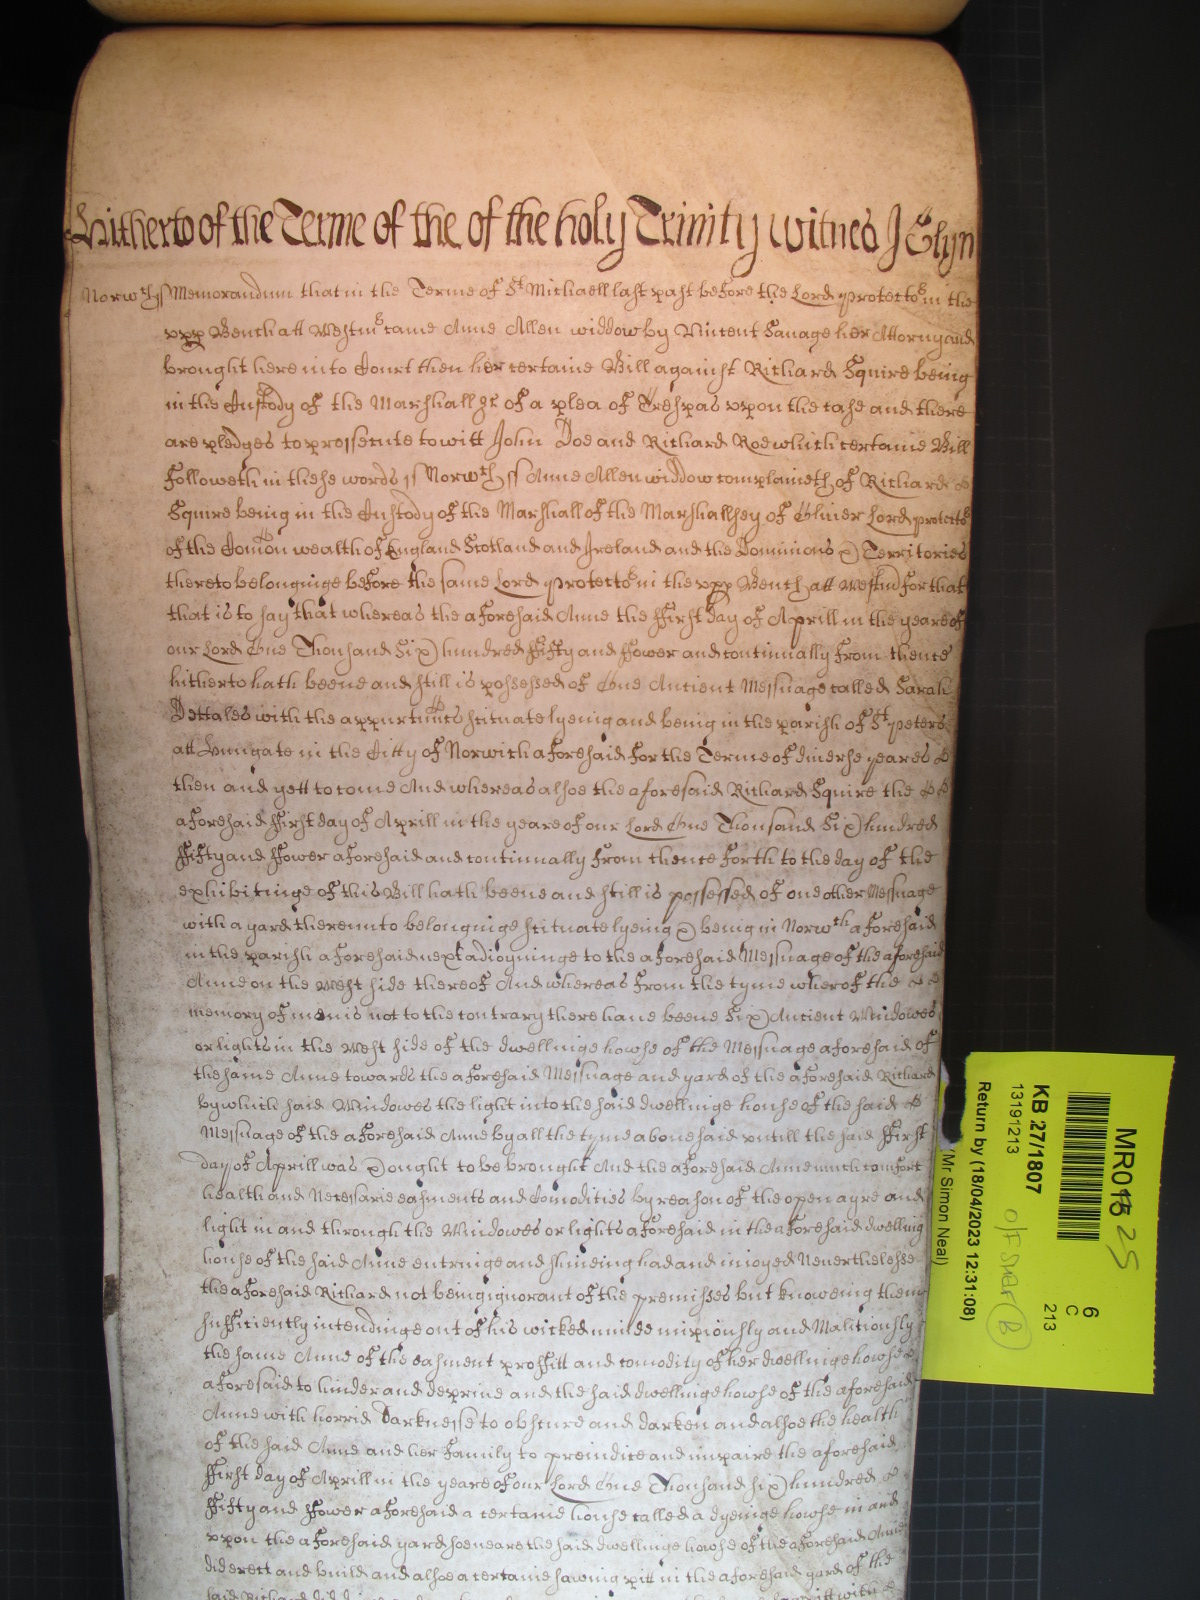 Hitherto of the Terme of the of the holy Trinity witnes J Glyn
Norwth ss Memorandum that in the Terme of St Michaell last past before the Lord protector in the
upp Bench att Westmr came Anne Allen widdow by Vincent Savage her Attorny and
brought here into Court then her certaine Bill against Richard Squire being
in the Custody of the Marshall &c of a plea of Trespas upon the case and there
are pledges to prossecute to witt John Doe and Richard Roe which certaine Bill
followeth in these words ss Norwth ss Anne Allen widdow complaineth of Richard
Squire being in the Custody of the Marshall of the Marshallsey of Oliver Lord protector
of the Comon wealth of England Scotland and Ireland and the Dominions & Territories
thereto belonginge before the same Lord protector in the upp Bench att Westmr for that
that is to say that whereas the aforesaid Anne the ffirst day of Aprill in the yeare of
our Lord One Thousand Six hundred ffifty and ffower and continually from thence
hitherto hath beene and still is possessed of One Ancient Messuage called Sarah
Dettales with the appurtnncs scituate lyeing and being in the parish of St peters
att Hungate in the Citty of Norwich aforesaid for the Terme of diverse yeares
then and yett to come And whereas alsoe the aforesaid Richard Squire the
aforesaid ffirst day of Aprill in the yeare of our Lord One Thousand Six hundred
ffifty and ffower aforesaid and continually from thence forth to the day of the
exhibitinge of this Bill hath beene and still is possessed of one other Messuage
with a yard thereunto belonginge scituate lyeing & being in Norwth aforesaid
in the parish aforesaid next adioyninge to the aforesaid Messuage of the aforesaid
Anne on the West side thereof And whereas from the tyme wherof the
memory of men is not to the contrary there have beene Six Ancient Windowes
or lights in the West side of the dwellinge howse of the Messuage aforesaid of
the same Anne towards the aforesaid Messuage and yard of the aforesaid Richard
by which said Windowes the light into the said dwellinge house of the said
Messuage of the aforesaid Anne by all the tyme abovesaid untill the said ffirst
day of Aprill was & ought to be brought And the aforesaid Anne much comfort
health and Necessarie easments and Comodities by reason of the open ayre and
light in and through the Windowes or lights aforesaid in the aforesaid dwelling
house of the said Anne entringe and shineing had and inioyed Neverthelesse
the aforesaid Richard not being ignorant of the premisses but knoweing them
sufficiently intendinge out of his wicked minde iniuriously and Malitiously
the same Anne of the easment proffitt and comodity of her dwellinge howse
aforesaid to hinder and deprive and the said dwellinge howse of the aforesaid
Anne with horrid Darknesse to obscure and darken and alsoe the health
of the said Anne and her Family to preiudice and impaire the aforesaid
ffirst day of Aprill in the yeare of our Lord One Thousand six hundred
ffifty and ffower aforesaid a certaine house called a dyeinge howse in and
upon the aforesaid yard soe neare the said dwellinge howse of the aforesaid Anne
did erect and build and alsoe a certaine sawing pitt in the aforesaid yard of the
said Richard did
MR018 25
KB 27/1807
13191213
Return by (18/04/2023 12:31:08)
(Mr Simon Neal)
6
C
213